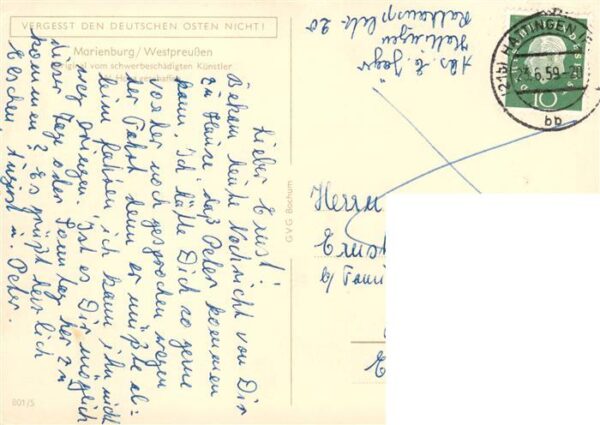 VERGESST DEN DEUTSCHEN OSTEN NICHT!
Marienburg/Westpreußen
Original vom schwerbeschädigten Künstler
Lieber Ernst!
Bekam heute Nachricht von Dir
zu Hause, daß Peter kommen
kann. Ich hätte Dich so gerne
vorher noch gesprochen wegen
der Fahrt denn er müßte al-
lein fahren ich kann ihn nicht
weg bringen. Ist es Dir möglich
dieser Tage oder Sonntag her zu
kommen? Es grüßt herzlich
u. Peter.
801/5
GVG Bochum
Abs. E. Jäger
Hattingen
20
(21b) HATTINGEN
23.6.59-20
bb
10
Herrn